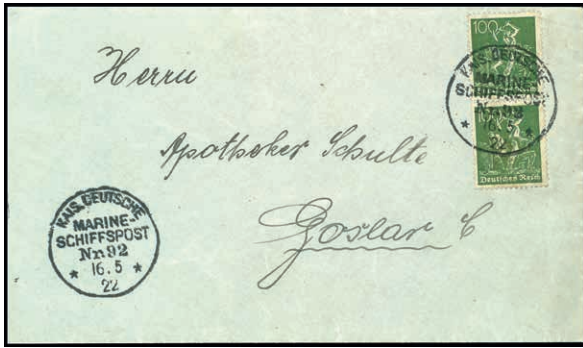 100
KAIS. DEUTSCHE
MARINE-
SCHIFFSPOST
Nr. 92
* 16.5 *
22
100
Deutsches Reich
Herrn
Apotheker Schulte
Goslar
KAIS. DEUTSCHE
MARINE-
SCHIFFSPOST
Nr. 92
* 16.5 *
22